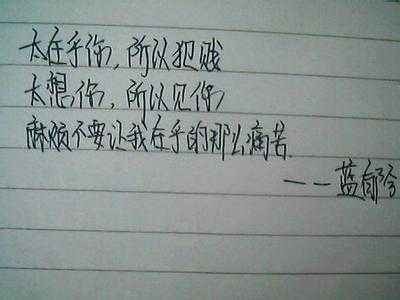 太在乎你，所以犯贱
太想你，所以见你
麻烦不要让我在乎的那么痛苦.
——蓝郁